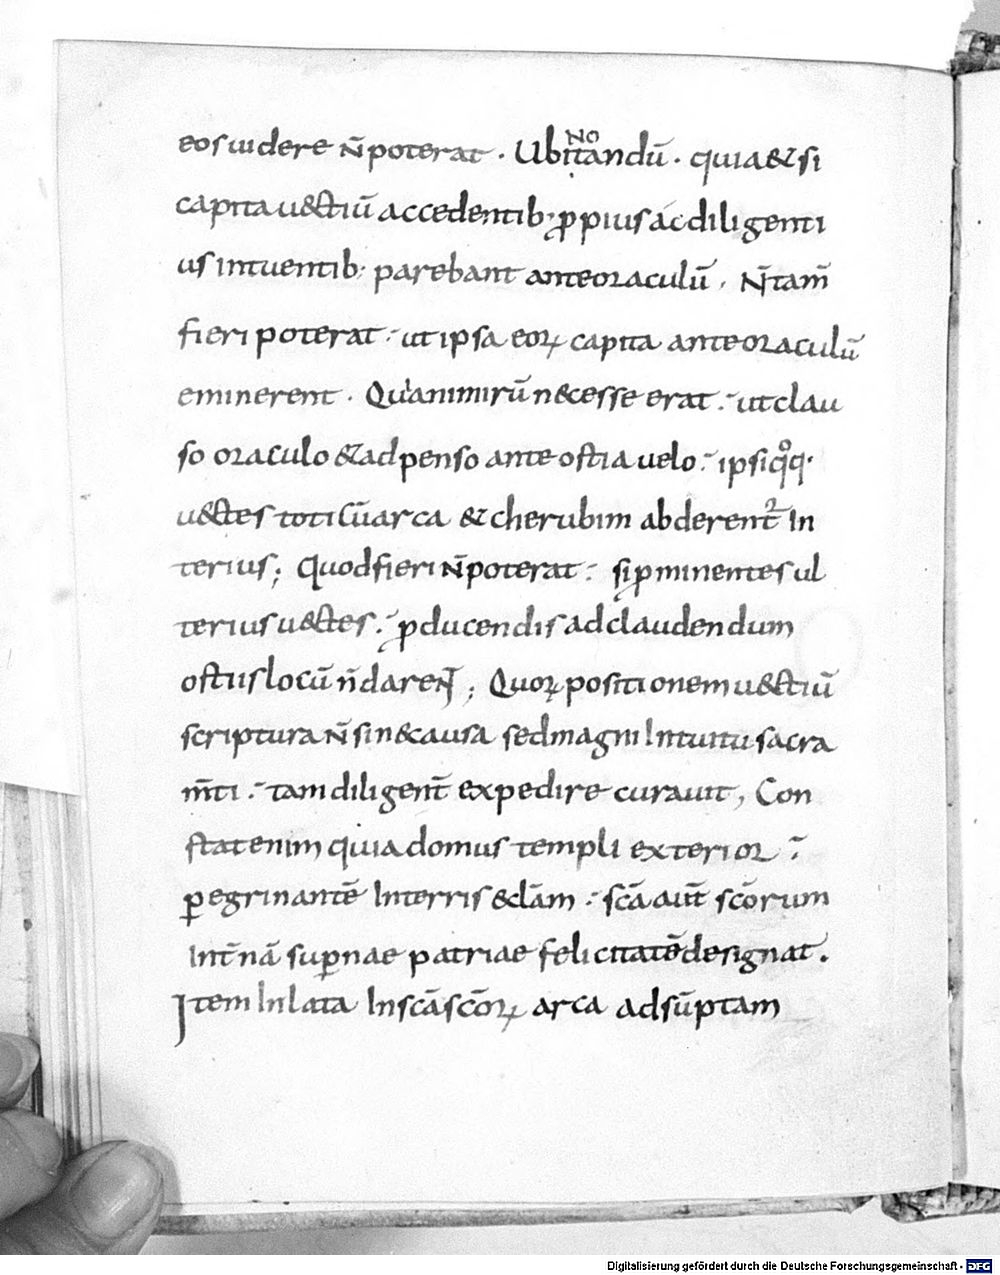 eos uidere n̄ poterat . Ubi notandū . quia & si
capita uectiū accedentib; ꝓpius ac diligenti
us intuentib; parebant ante oraculū , N̄ tam̄
fieri poterat ; ut ipsa eoꝝ capita ante oraculū
eminerent . Quia nimirū necesse erat ; ut clau
so oraculo & adpenso ante ostia uelo ; ipsi qͦq·
uectes toti cū arca & cherubim abderent᷑ in
terius ; Quod fieri n̄ poterat ; si ꝓminentes ul
terius uectes ; ꝓducendis ad claudendum
ostiis locū n̄ darent ; Quoꝝ positionem uectiū
scriptura n̄ sine causa sed magni intuitu sacra
m̄ti ; tam diligent̄ expedire curauit , Con
stat enim quia domus templi exterior ;
ꝑegrinantē in terris ecl̄am ; sc̄a aut̄ sc̄orum
int̄nā suꝑnae patriae felicitatē designat .
Item inlata in sc̄a sc̄oꝝ arca adsūptam
Digitalisierung gefördert durch die Deutsche Forschungsgemeinschaft - DFG